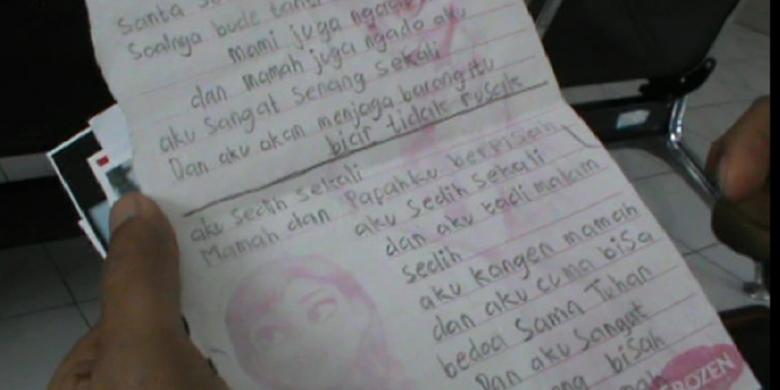 Santa
Soalnya bude
mami juga
dan mamah juga ngado aku
aku sangat senang sekali
Dan aku akan menjaga barang itu
biar tidak rusak
aku sedih sekali
Mamah dan Papahku berpisah
aku sedih sekali
dan aku tadi malam
sedih
aku kangen mamah
dan aku cuma bisa
bedoa sama Tuhan
Dan aku sangat
bisah
FROZEN